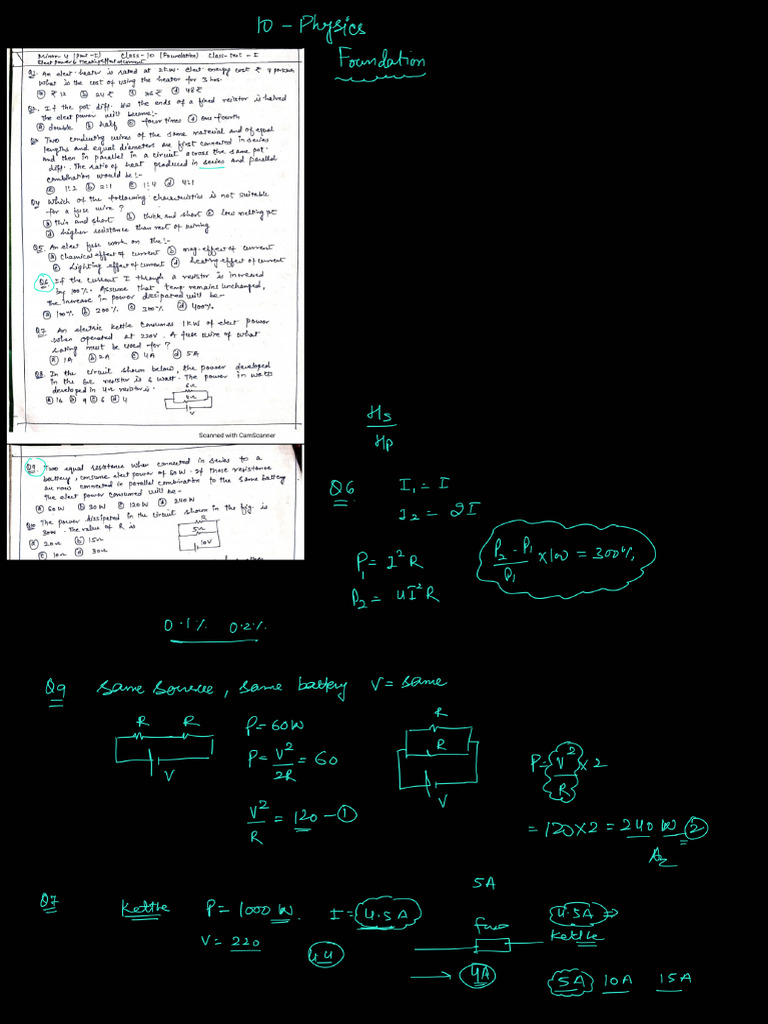 10 - Physics
Foundation
Class-10 (Foundation) Class-test - I
Q1. An elect. heater is rated at 2kW. elect. energy cost ₹ 4 per kWh
What is the cost of using the heater for 3 hrs.
ⓐ ₹ 12 ⓑ 24 ₹ ⓒ 36 ₹ ⓓ 48 ₹
Q2. If the pot diff. b/w the ends of a fixed resistor is halved
the elect power will become:-
ⓐ double ⓑ half ⓒ four times ⓓ one-fourth
Q3 Two conducting wires of the same material and of equal
lengths and equal diameters are first connected in series
and then in parallel in a circuit across the same pot.
diff. The ratio of heat produced in series and parallel
combination would be:-
ⓐ 1:2 ⓑ 2:1 ⓒ 1:4 ⓓ 4:1
Q4 Which of the following characteristics is not suitable
for a fuse wire ?
ⓐ thin and short ⓑ thick and short ⓒ low melting pt
ⓓ higher resistance than rest of wiring
Q5. An elect fuse work on the:-
ⓐ chemical effect of current ⓑ mag. effect of current
ⓒ Lighting effect of current ⓓ heating effect of current
Q6 If the current I through a resistor is increased
by 100%. Assume that temp remains unchanged,
the increase in power dissipated will be-
ⓐ 100% ⓑ 200% ⓒ 300% ⓓ 400%
Q7 An electric kettle consumes 1kW of elect power
when operated at 220V. A fuse wire of what
rating must be used for ?
ⓐ 1A ⓑ 2A ⓒ 4A ⓓ 5A
Q8. In the circuit shown below, the power developed
in the 6Ω resistor is 6 watt. The power in watts
developed in 4Ω resistor is.
ⓐ 16 ⓑ 9 ⓒ 6 ⓓ 4
6Ω
4Ω
V
Scanned with CamScanner
Q9. Two equal resistance when connected in series to a
battery, consume elect power of 60W. If these resistance
are now connected in parallel combination to the same battery
the elect power consumed will be-
ⓐ 60W ⓑ 30W ⓒ 120W ⓓ 240W
Q10 The power dissipated in the circuit shown in the fig. is
30W. The value of R is
ⓐ 20Ω ⓑ 15Ω
ⓒ 10Ω ⓓ 30Ω
R
5Ω
10V
Hs
Hp
Q6 I₁ = I
I₂ = 2I
P₁ = I²R
P₂ = 4I²R
P₂-P₁/P₁ × 100 = 300%
0.1% 0.2%
Q9 Same source, same battery V = same
R R
V
P = 60W
P = V²/2R = 60
V²/R = 120 - ①
R
R
V
P = V²/R × 2
= 120 × 2 = 240 W ②
Q7 Kettle P = 1000 W. I = 4.5A
V = 220
4.4
5A
Fuse
4A
4.5A ⇒
Kettle
5A 10A 15A